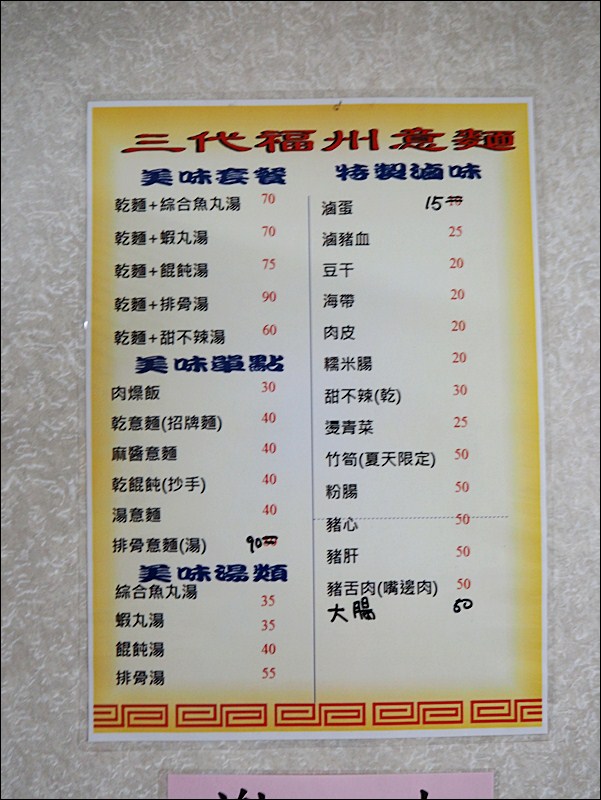 三代福州意麵
美味套餐
乾麵+綜合魚丸湯 70
乾麵+蝦丸湯 70
乾麵+餛飩湯 75
乾麵+排骨湯 90
乾麵+甜不辣湯 60
美味單點
肉燥飯 30
乾意麵(招牌麵) 40
麻醬意麵 40
乾餛飩(抄手) 40
湯意麵 40
排骨意麵(湯) 90
美味湯類
綜合魚丸湯 35
蝦丸湯 35
餛飩湯 40
排骨湯 55
特製滷味
滷蛋 15 10
滷豬血 25
豆干 20
海帶 20
肉皮 20
糯米腸 20
甜不辣(乾) 30
燙青菜 25
竹筍(夏天限定) 50
粉腸 50
豬心 50
豬肝 50
豬舌肉(嘴邊肉) 50
大腸 60